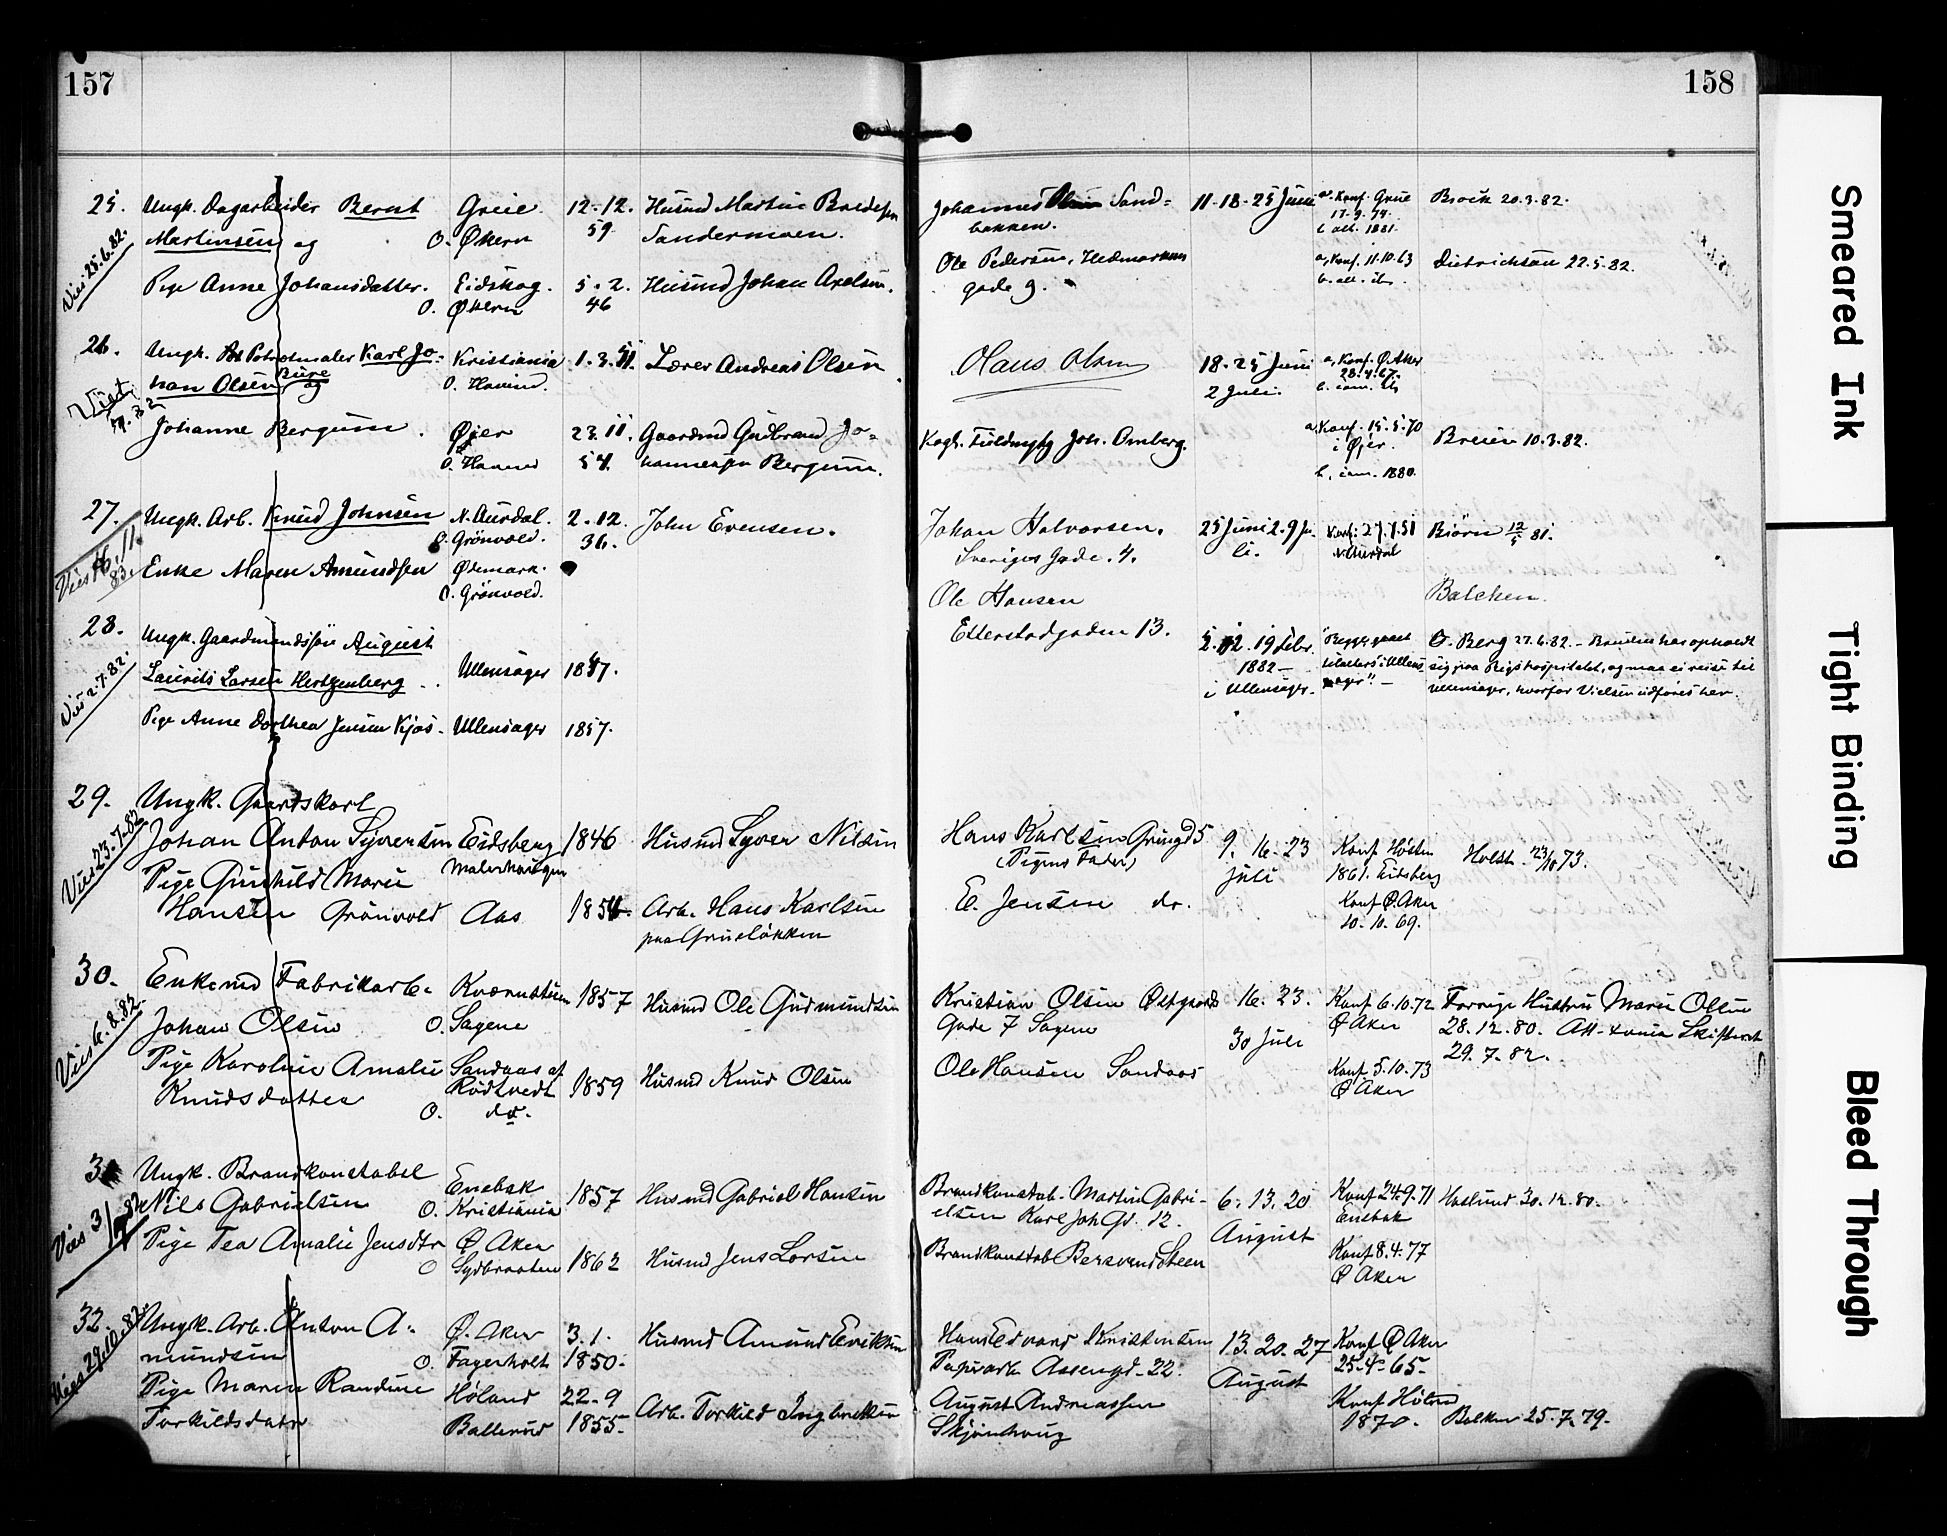 157
25. Ungk. Dagarbeider Bernt Greie. 12-12. Husmd Martin Bredesen
Martinsen og O. Økern 59 Sandermoen.
Vies 25.6.82.
Pige Anne Johansdatter. Eidskog. 5-2. Husmd Johan Axelsen.
O. Økern 46
26. Ungk. Karl Jo- Kristiania 1.3.51. Lærer Andreas Olsen
han Olsen Bure og O. Havind.
Viet
Johanne Bergum. Øjer 23.11. Gaardmd Gudbrand Jo-
O. Havind 54. hannessen Bergum.
27. Ungk. Arb. Knud Johnsen N. Aurdal. 2-12. John Evensen.
O. Grönvold. 36.
Vies 16.11.83.
Enke Maren Amundsen Ødemark.
O. Grönvold.
28. Ungk. Gaardmandssøn August
Laurits Larsen Hertzenberg Ullensager 1857.
Vies 2.7.82.
Pige Anne Dorthea Jensen Kjos. Ullensager 1857.
29. Ungk. Gaardskarl
Johan Anton Syversen Eidsberg 1846 Husmd Syver Nilsen
Vies 23.7.82
Pige Gunhild Marie
Hansen Grönvold Aas 1854. Arb. Hans Karlsen
paa Grüneløkken
30. Enkemd Fabrikarb. Kværnstuen 1857 Husmd Ole Gudmundsen
Johan Olsen O. Sagene
Vies 6.8.82
Pige Karoline Amalie Sandaas af 1859 Husmd Knud Olsen
Knudsdatter Rödtvedt
O. do.
31 Ungk. Brandkonstabel
Nils Gabrielsen Enebak 1857 Husmd Gabriel Hansen
O. Kristiania
Pige Tea Amalie Jensdtr Ø Aker 1862 Husmd Jens Larsen
O Sydbraaten
32. Ungk. Arb. Anton A- Ø. Aker 3.1. Husmd Amund Eriksen
mundsen O. Fagerholt 1850.
Vies 29.10.82.
Pige Maren Randine Høland 22-9 Arb. Torkild Ingbretsen
Torkildsdatr Ballerud 1855.
158
Johannes Sand= 11-18-25 Juni a. Konf. Grue Brock 20.3.82.
bakken. 17.9.74.
b. att. 1881.
Ole Pedersen, Hedmarkens a, Konf. 11.10.63 Dietrichson 22.5.82.
gade 9. b. att. ibs.
Hans Olsen 18-25 Juni a, Konf. Ø. Aker
2 Juli. 28.4.67.
Kogl. Fuldmgtg Joh. Omberg. a, Konf. 15.5.70 Breien 10.3.82.
i Øjer.
1880.
Johan Halvorsen. 25 Juni 2.9 Ju- Konf. 27.7.51 Biörn 12/5 81.
Sveriges Gade. 4. li. N Aurdal
Ole Hansen Balchen.
Etterstadgaden 13.
5. 12. 19 Febr. "Begge gaaet O. Berg 27.6.82. - Bruden har opholdt
1882 - tilalters i Ullens sig paa Rigshospitalet, og maa ei reise til
i Ullensager. ager" - Ullensager, hvorfor Vielsen udføres her.
Hans Karlsen Grüngd 5 9. 16. 23 Konf Høllen Holst 73.
(Pigens Fader) Juli 1861. Eidsberg
E. Jensen do. Konf Ø. Aker
10.10.69.
Kristian Olsen Østgaards 16. 23. Konf 6.10.72 Forrige Hustru Marie Olsen
Gade 7 Sagene 30 Juli Ø Aker 28.12.80. Att. Skifteret
29.7.82.
Ole Hansen Sandaas Konf 5.10.73
Ø Aker
Brandkonstab. Martin Gabri- 6. 13. 20 Konf 24.9.71 Haslund 30.12.80.
elsen Karl Joh Gd. 12. August Enebak
Brandkonstab Bersvend Steen Konf 8.4.77
Ø Aker
Hans Edvard Kristensen 13. 20. 27 Konf Ø Aker
Papirarb. Assengd. 22. August 25-4-65.
August Andreassen Konf Høland
Skjønhaug 1870. Balken 25.7.79.
Smeared Ink
Tight Binding
Bleed Through